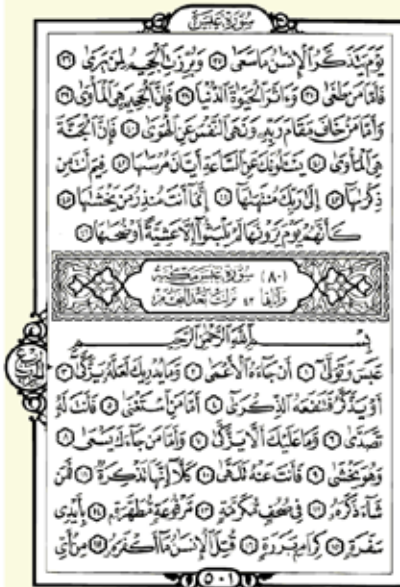 سُورَةُ عَبَسَ
يَوْمَ يَتَذَكَّرُ ٱلْإِنسَٰنُ مَا سَعَىٰ ٣٥ وَبُرِّزَتِ ٱلْجَحِيمُ لِمَن يَرَىٰ ٣٦
فَأَمَّا مَن طَغَىٰ ٣٧ وَءَاثَرَ ٱلْحَيَوٰةَ ٱلدُّنْيَا ٣٨ فَإِنَّ ٱلْجَحِيمَ هِيَ ٱلْمَأْوَىٰ ٣٩
وَأَمَّا مَنْ خَافَ مَقَامَ رَبِّهِۦ وَنَهَى ٱلنَّفْسَ عَنِ ٱلْهَوَىٰ ٤٠ فَإِنَّ ٱلْجَنَّةَ
هِيَ ٱلْمَأْوَىٰ ٤١ يَسْـَٔلُونَكَ عَنِ ٱلسَّاعَةِ أَيَّانَ مُرْسَىٰهَا ٤٢ فِيمَ أَنتَ مِن
ذِكْرَىٰهَا ٤٣ إِلَىٰ رَبِّكَ مُنتَهَىٰهَا ٤٤ إِنَّمَا أَنتَ مُنذِرُ مَن يَخْشَىٰهَا ٤٥
كَأَنَّهُمْ يَوْمَ يَرَوْنَهَا لَمْ يَلْبَثُوٓا۟ إِلَّا عَشِيَّةً أَوْ ضُحَىٰهَا ٤٦
(٨٠) سُورَةُ عَبَسَ مَكِّيَّة
وَآيَاتُهَا ٤٢ نَزَلَتْ بَعْدَ النَّجْم
بِسْمِ ٱللَّهِ ٱلرَّحْمَٰنِ ٱلرَّحِيمِ
عَبَسَ وَتَوَلَّىٰٓ ١ أَن جَآءَهُ ٱلْأَعْمَىٰ ٢ وَمَا يُدْرِيكَ لَعَلَّهُۥ يَزَّكَّىٰٓ ٣
أَوْ يَذَّكَّرُ فَتَنفَعَهُ ٱلذِّكْرَىٰٓ ٤ أَمَّا مَنِ ٱسْتَغْنَىٰ ٥ فَأَنتَ لَهُۥ
تَصَدَّىٰ ٦ وَمَا عَلَيْكَ أَلَّا يَزَّكَّىٰ ٧ وَأَمَّا مَن جَآءَكَ يَسْعَىٰ ٨
وَهُوَ يَخْشَىٰ ٩ فَأَنتَ عَنْهُ تَلَهَّىٰ ١٠ كَلَّآ إِنَّهَا تَذْكِرَةٌ ١١ فَمَن
شَآءَ ذَكَرَهُۥ ١٢ فِى صُحُفٍ مُّكَرَّمَةٍ ١٣ مَّرْفُوعَةٍ مُّطَهَّرَةٍۭ ١٤ بِأَيْدِى
سَفَرَةٍ ١٥ كِرَامٍۭ بَرَرَةٍ ١٦ قُتِلَ ٱلْإِنسَٰنُ مَآ أَكْفَرَهُۥ ١٧ مِنْ أَىِّ
٥٠١